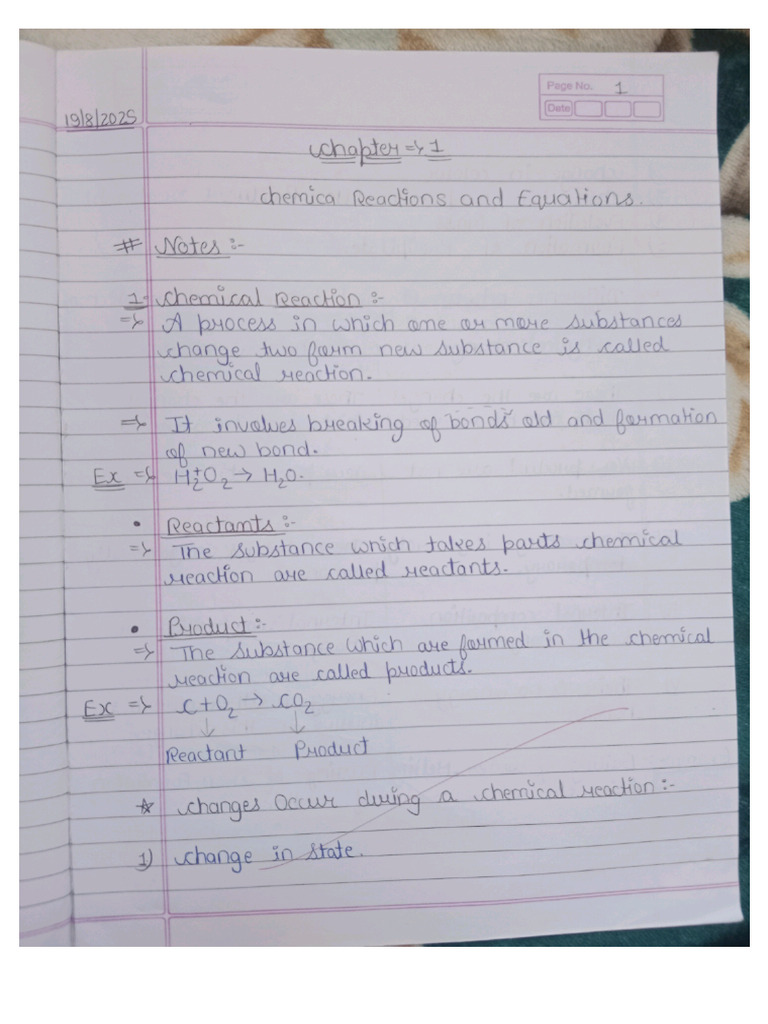 Page No. 1
Date
19/8/2025
Chapter => 1
Chemica Reactions and Equations.
# Notes :-
1- Chemical Reaction :-
=> A process in which one or more substances
change two form new substance is called
chemical reaction.
=> It involves breaking of bonds old and formation
of new bond.
Ex => H₂+O₂ → H₂O.
• Reactants :-
=> The substance which takes parts chemical
reaction are called reactants.
• Product :-
=> The substance which are formed in the chemical
reaction are called products.
Ex => C+O₂ → CO₂
↓ ↓
Reactant Product
☆ Changes Occur during a chemical reaction :-
1) Change in state.